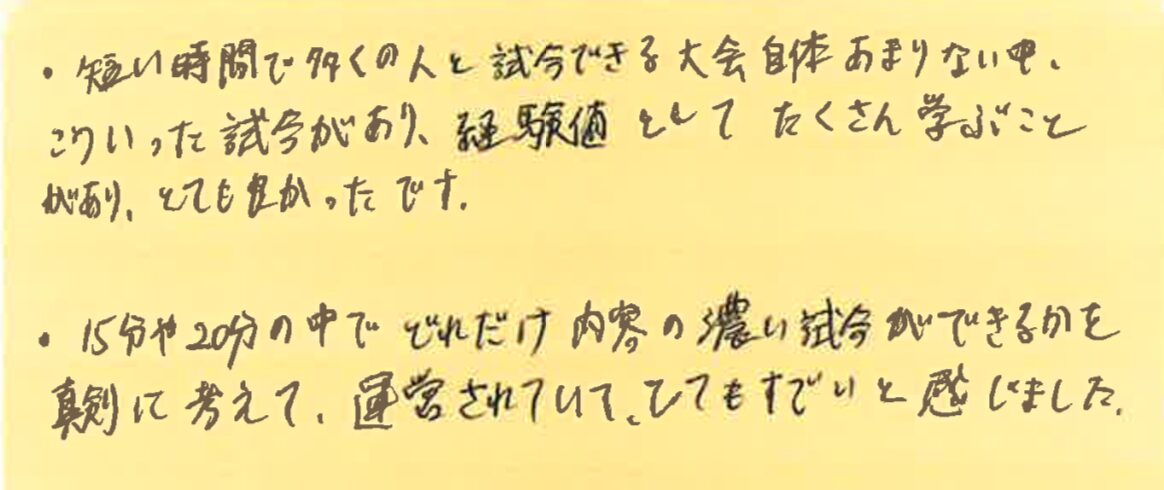 ・短い時間で多くの人と試合できる大会自体あまりない中、
こういった試合があり、経験値としてたくさん学ぶこと
があり、とても良かったです。
・15分や20分の中でどれだけ内容の濃い試合ができるかを
真剣に考えて、運営されていて、とてもすごいと感じました。